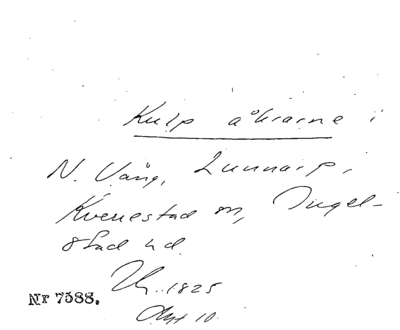 Kulp åkrarne i
N. Vång, Lunnarp,
Kverrestad sn, Ingel-
stad hd.
1825
Akt 10.
Nr 7588.